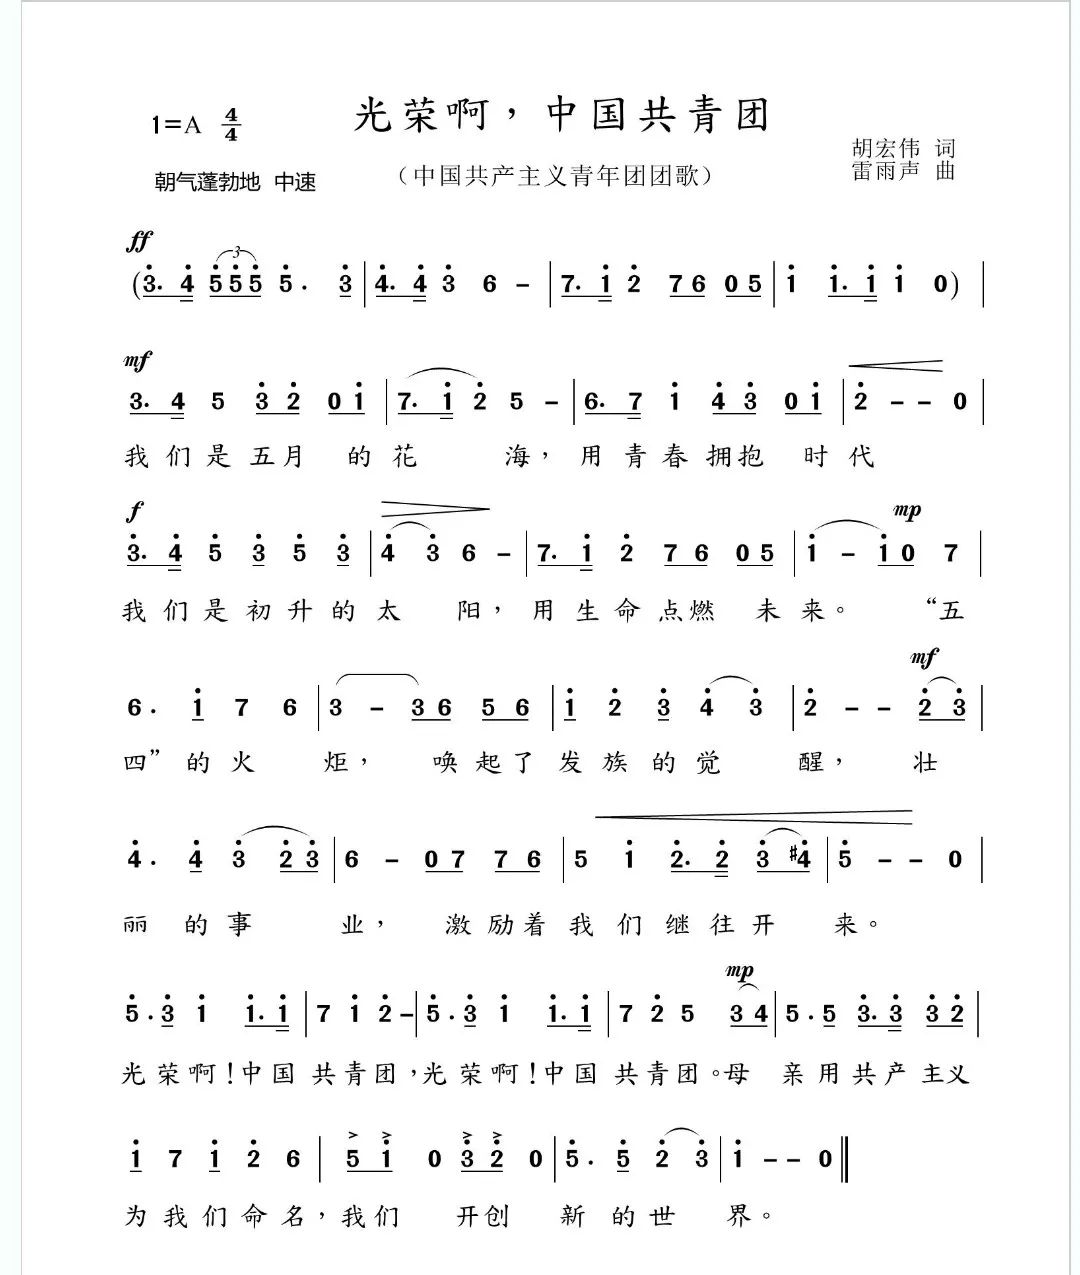 光荣啊，中国共青团
1=A 4/4
（中国共产主义青年团团歌）
胡宏伟 词
朝气蓬勃地 中速
雷雨声 曲
ff
3
(3. 4 5 5 5 5 . 3 | 4. 4 3 6 – | 7. 1 2 7 6 0 5 | 1 1. 1 1 0) |
mf
3. 4 5 3 2 0 1 | 7. 1 2 5 – | 6. 7 1 4 3 0 1 | 2 – – 0 |
我们是五月 的花 海，用青春拥抱 时代
f mp
3. 4 5 3 5 3 | 4 3 6 – | 7. 1 2 7 6 0 5 | 1 – 1 0 7 |
我们是初升的太 阳，用生命点燃 未来。 “五
mf
6 . 1 7 6 | 3 – 3 6 5 6 | 1 2 3 4 3 | 2 – – 2 3 |
四”的火 炬， 唤起了发族的觉 醒， 壮
4 . 4 3 2 3 | 6 – 0 7 7 6 | 5 1 2. 2 3 #4 | 5 – – 0 |
丽 的事 业， 激励着我们继往开 来。
mp
5 . 3 1 1. 1 | 7 1 2 – | 5 . 3 1 1. 1 | 7 2 5 3 4 | 5 . 5 3. 3 3 2 |
光荣啊！中国 共青团，光荣啊！中国 共青团。母 亲用共产主义
> > > >
1 7 1 2 6 | 5 1 0 3 2 0 | 5 . 5 2 3 | 1 – – 0 ‖
为我们命名，我们 开创 新的世 界。